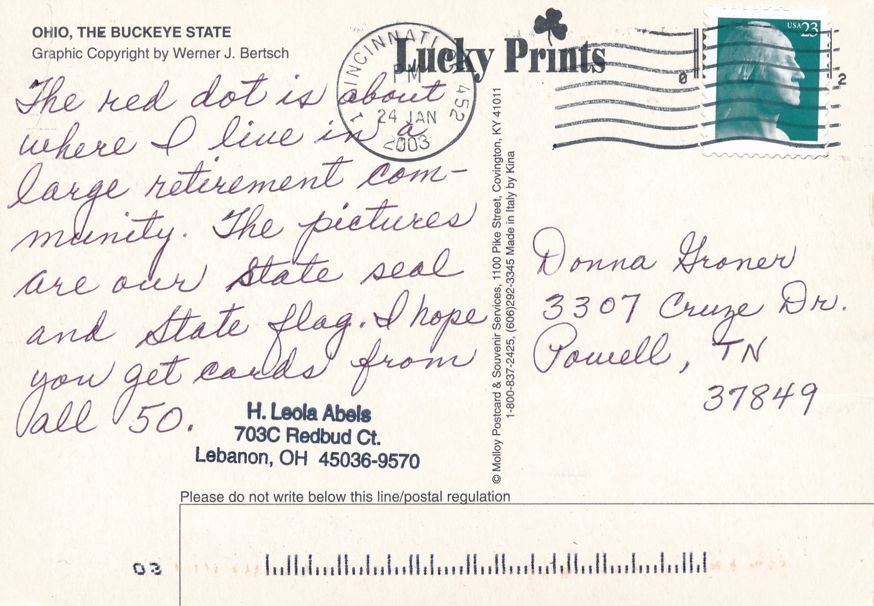 OHIO, THE BUCKEYE STATE
Graphic Copyright by Werner J. Bertsch
The red dot is about
where I live in a
large retirement com-
munity. The pictures
are our state seal
and State flag. I hope
you get cards from
all 50.
H. Leola Abels
703C Redbud Ct.
Lebanon, OH 45036-9570
CINCINNATI
452
PM
24 JAN
2003
Lucky Prints
USA 23
© Molloy Postcard & Souvenir Services, 1100 Pike Street, Covington, KY 41011
1-800-837-2425, (606)292-3345 Made in Italy by Kina
Donna Groner
3307 Cruze Dr.
Powell, TN
37849
Please do not write below this line/postal regulation
03